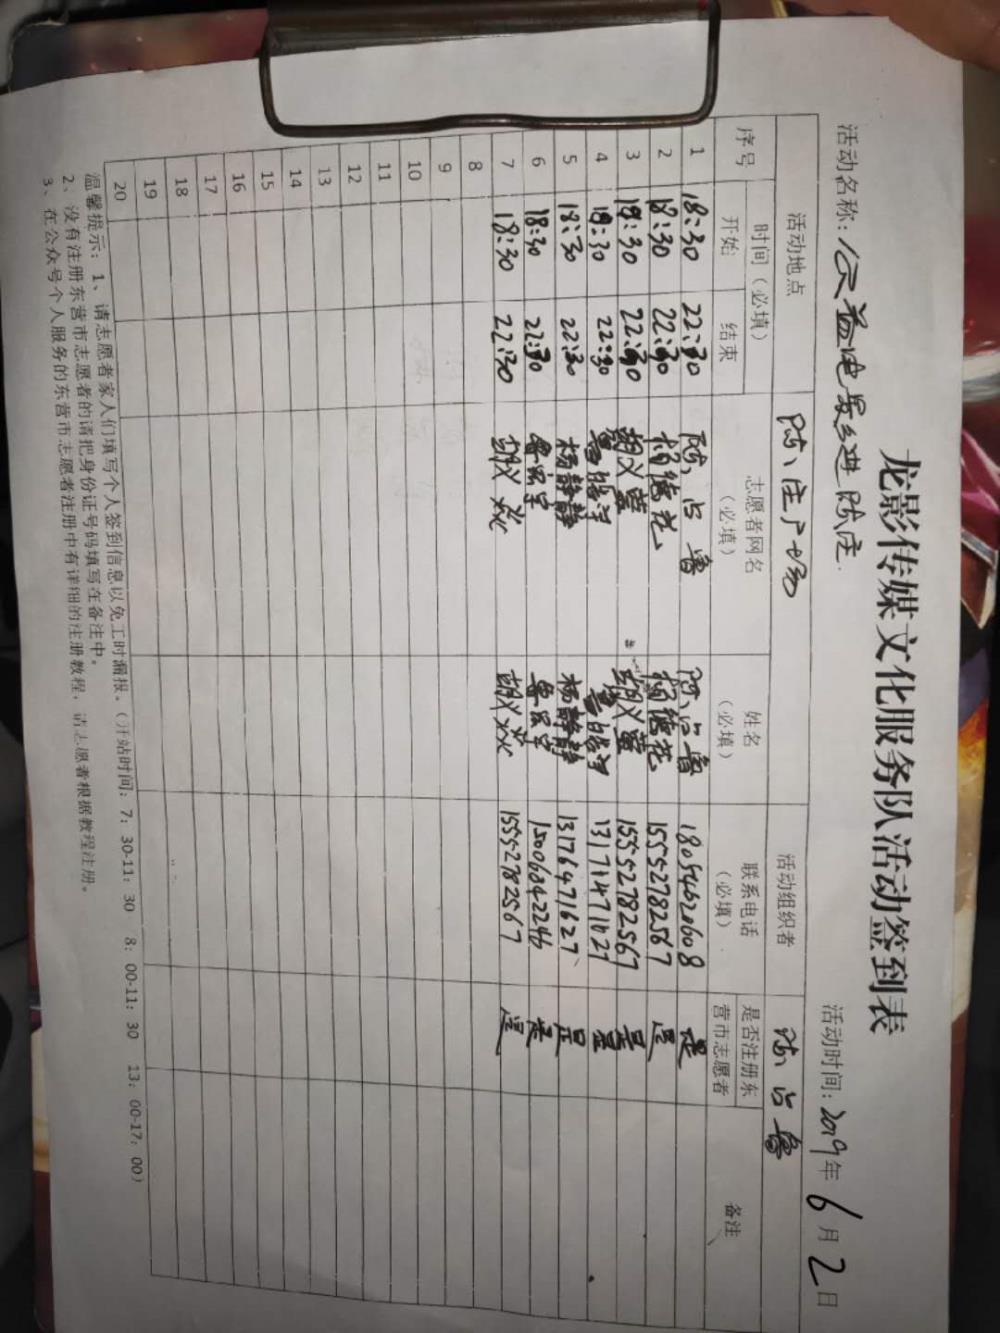 龙影传媒文化服务队活动签到表
活动名称：公益电影进陈庄 活动时间：2019年6月2日
活动地点 陈庄广场 活动组织者 陈占鲁
序号 时间（必填） 志愿者网名（必填） 姓名（必填） 联系电话（必填） 是否注册东营市志愿者 备注
开始 结束
1 18:30 22:30 陈占鲁 陈占鲁 18054620608 是
2 18:30 22:30 杨德花 杨德花 15552782567 是
3 18:30 22:30 胡义蕾 胡义蕾 15552782567 是
4 18:30 22:30 13171471627 是
5 18:30 22:30 杨静静 杨静静 13176471627 是
6 18:30 22:30 15006042246 是
7 18:30 22:30 胡义 胡义 15552782567 是
8
9
10
11
12
13
14
15
16
17
18
19
20
温馨提示：1、请志愿者家人们填写个人签到信息以免工时漏报。（开站时间：7：30-11：30 8：00-11：30 13：00-17：00）
2、没有注册东营市志愿者的请把身份证号码填写在备注中。
3、在公众号个人服务的东营市志愿者注册中有详细的注册教程，请志愿者根据教程注册。